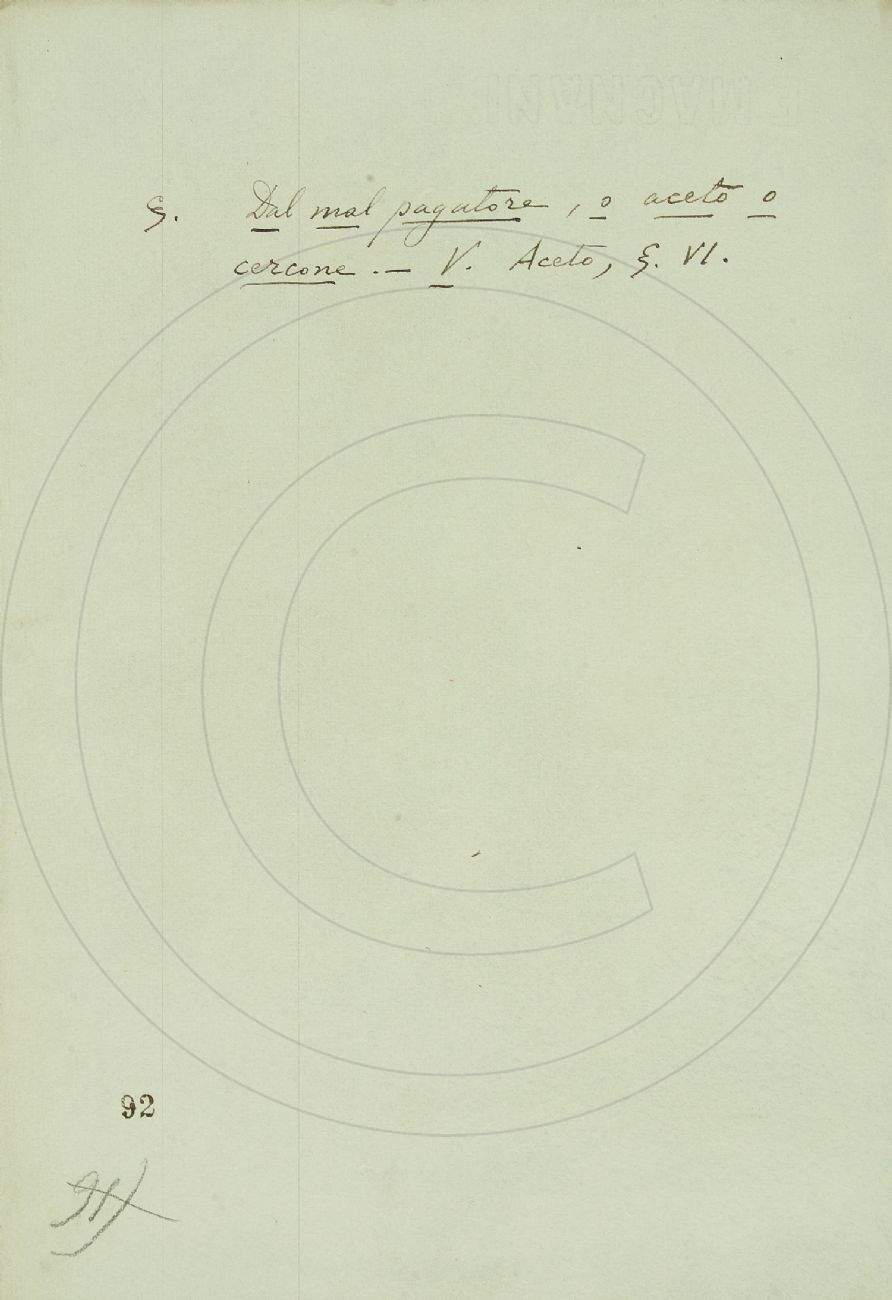 §. Dal mal pagatore, o aceto o
cercone. — V. Aceto, §. VI.
92